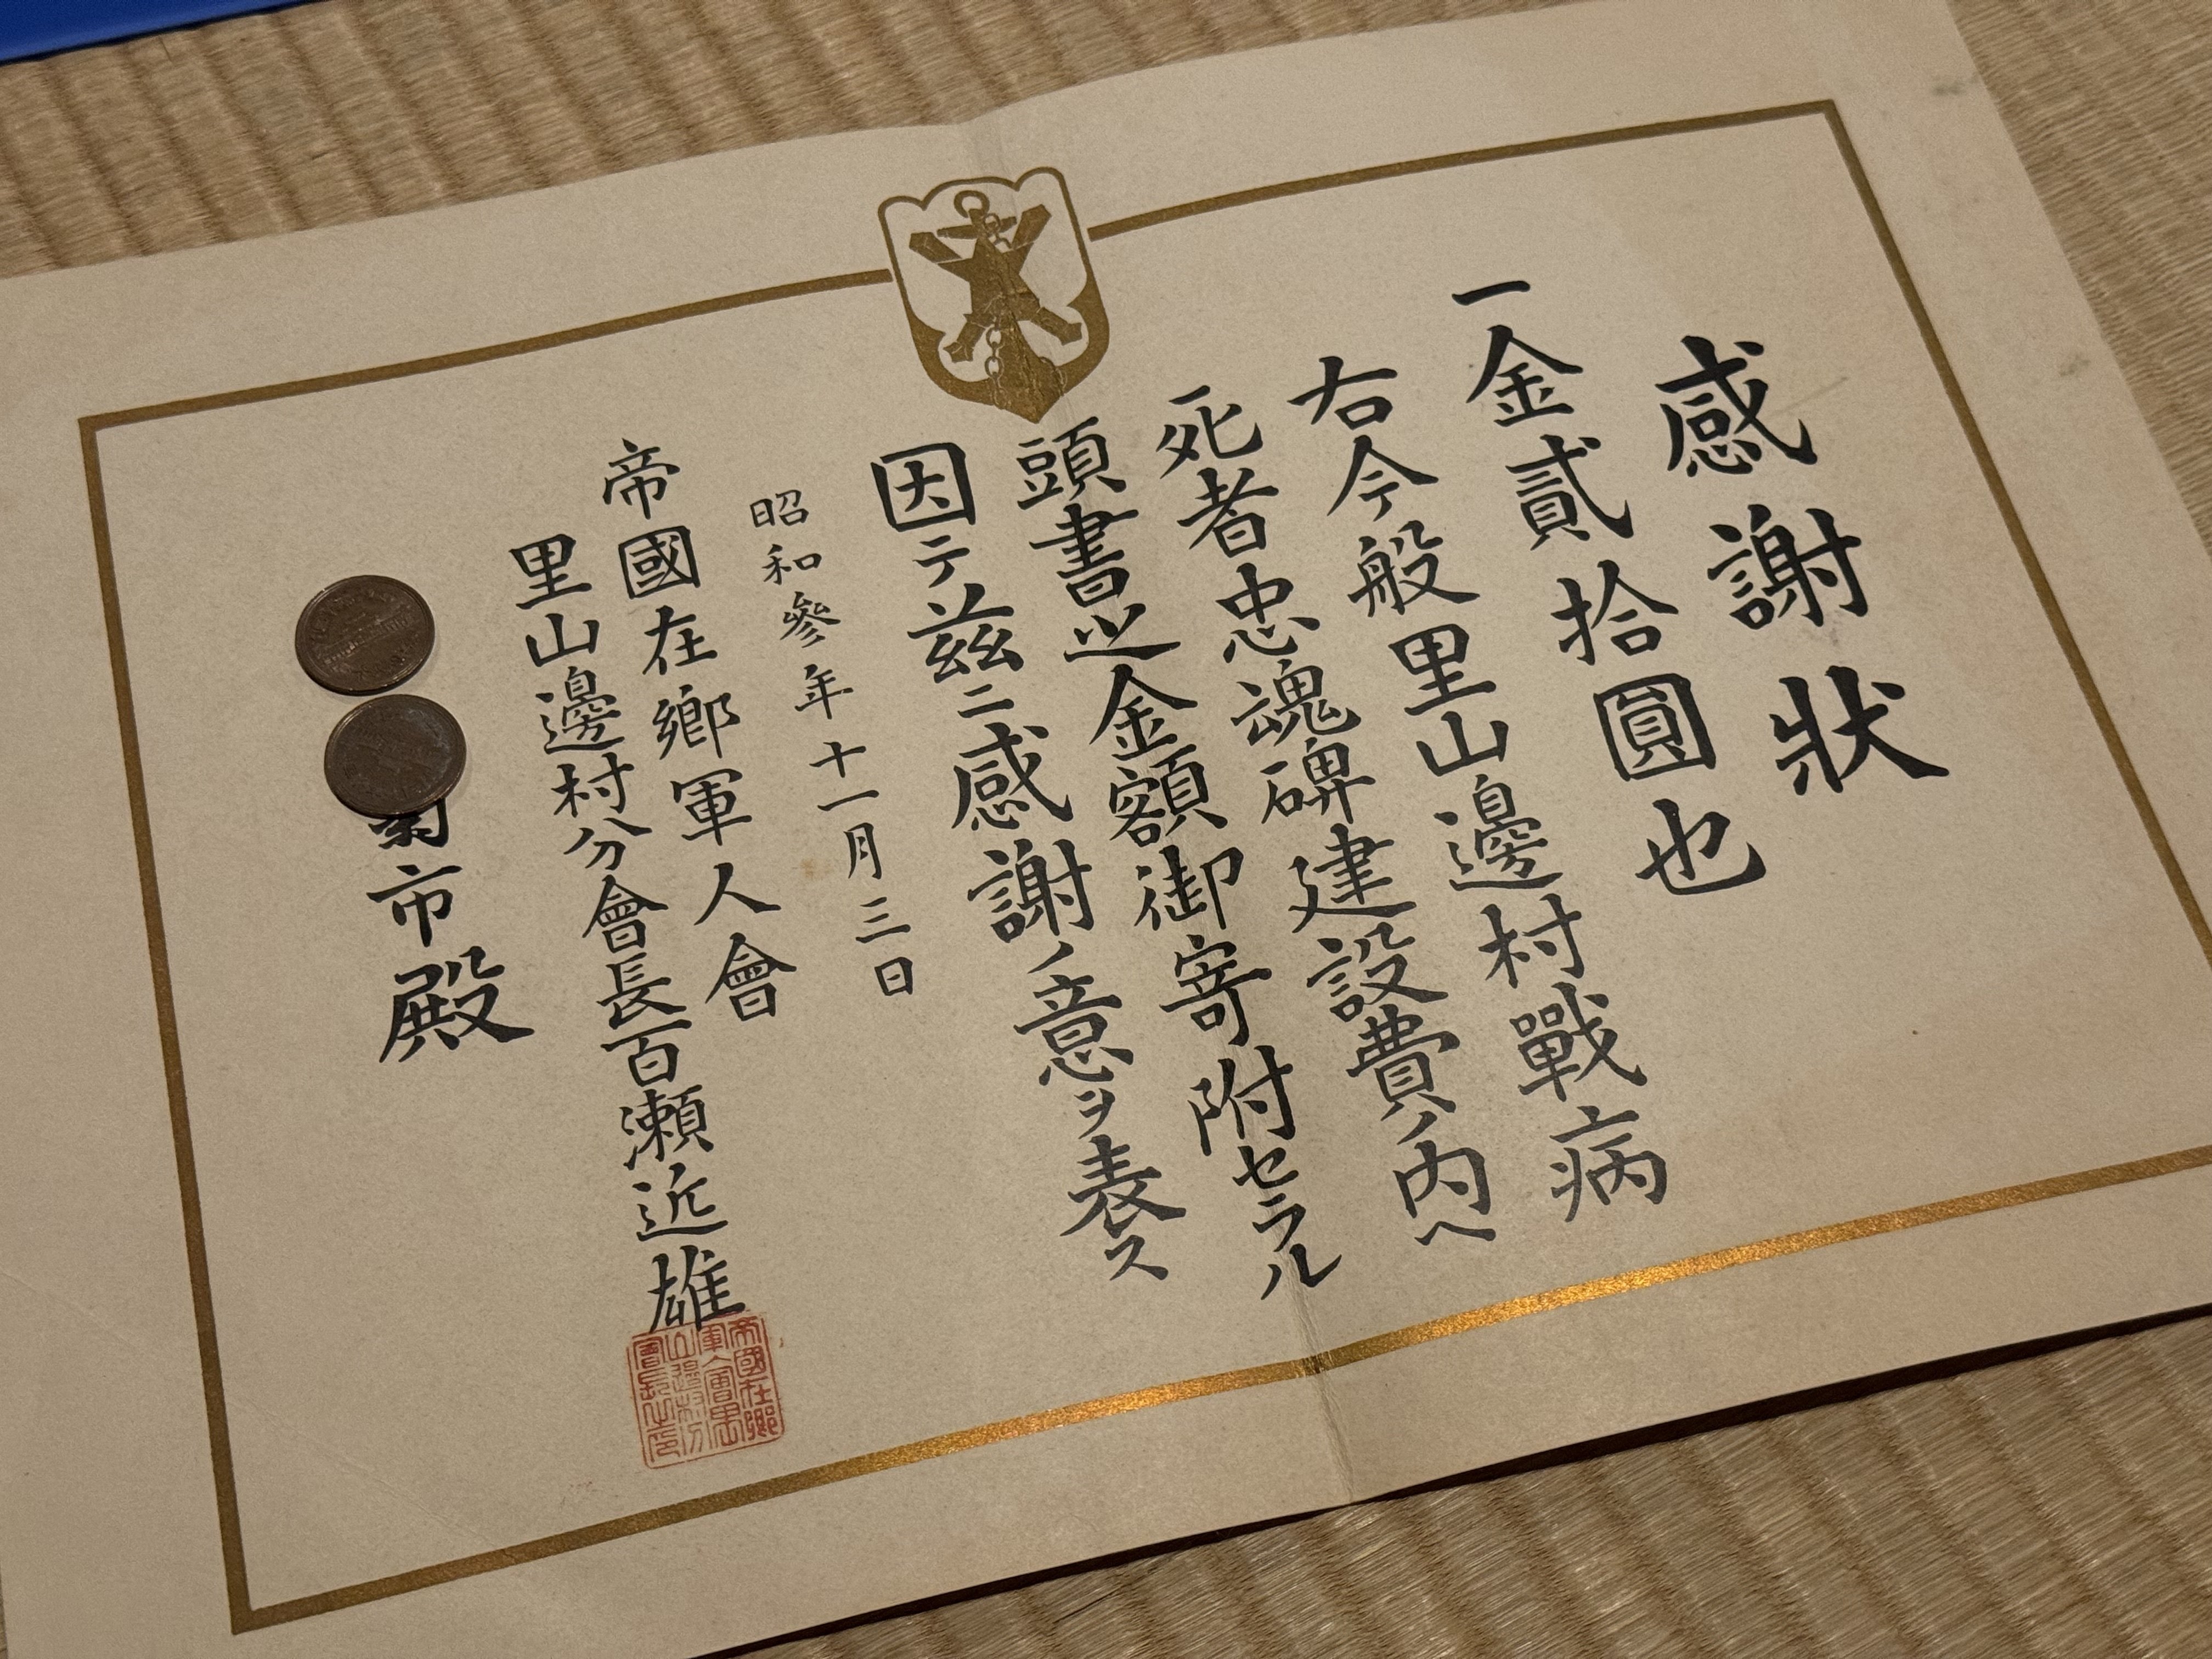 感謝狀
一金貳拾圓也
右今般里山邊村戰病
死者忠魂碑建設費ノ内ヘ
頭書之金額御寄附セラル
因テ茲ニ感謝ノ意ヲ表ス
昭和參年十一月三日
帝國在鄉軍人會
里山邊村分會長百瀨近雄
市殿
帝國在鄉
軍人會里
山邊村分
會長之印